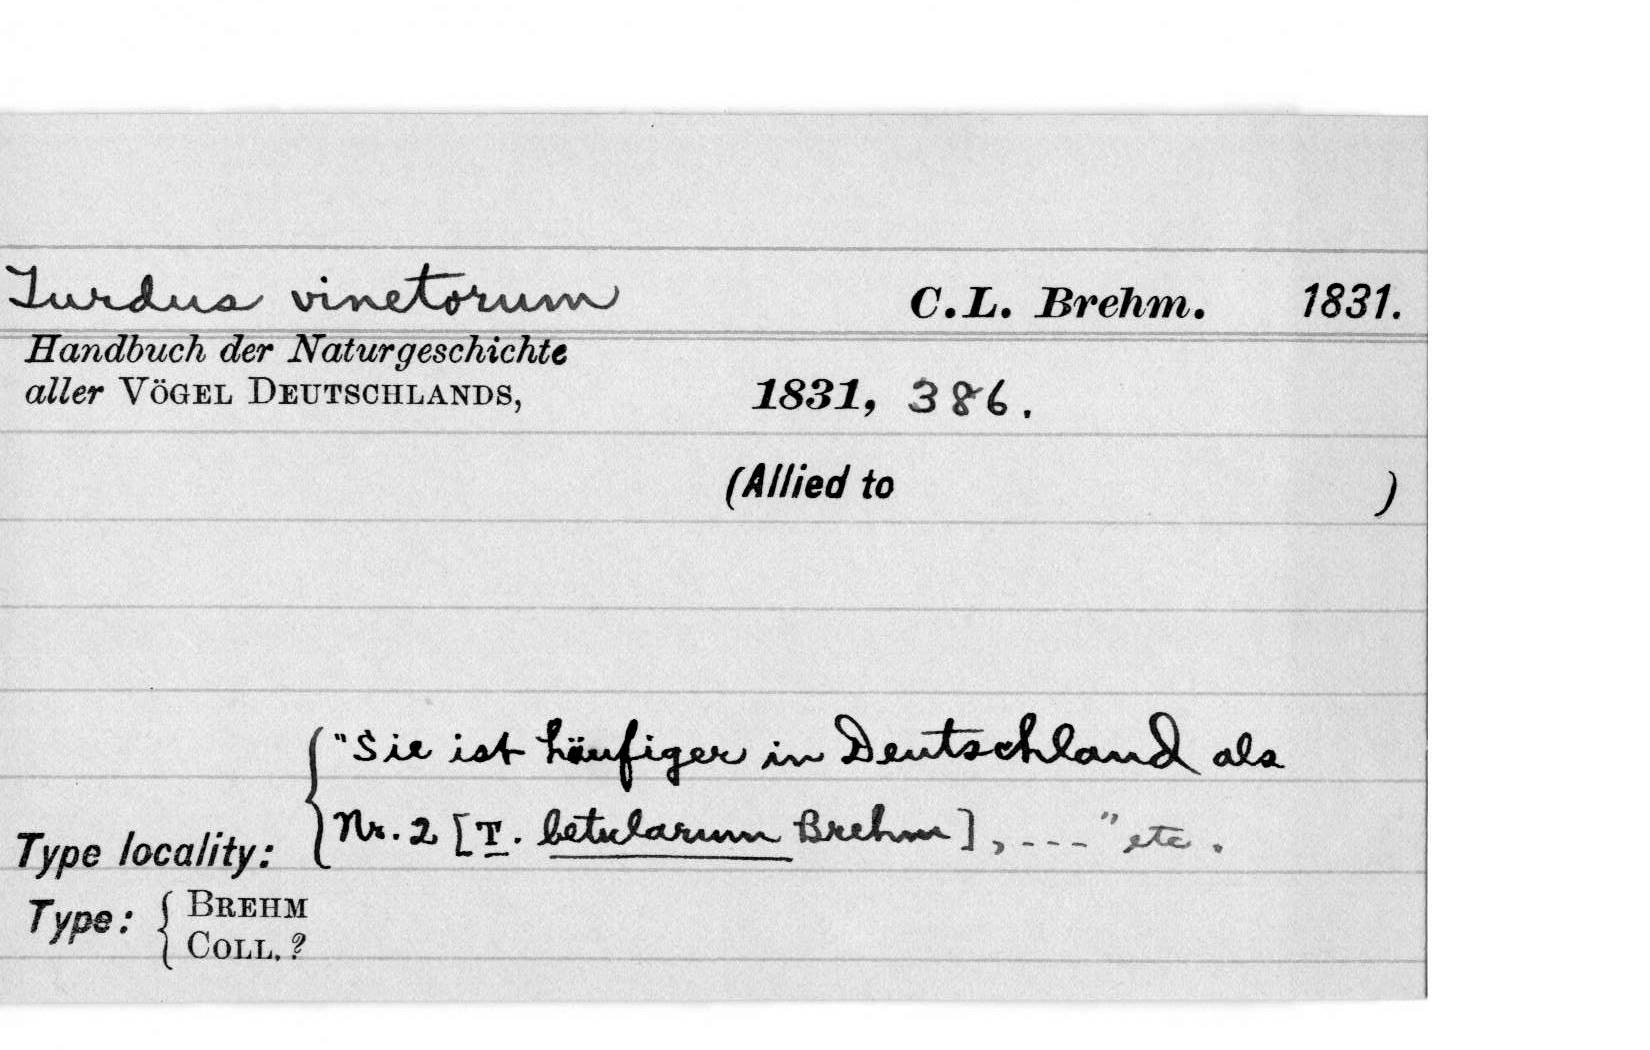 Turdus vinetorum C.L. Brehm. 1831.
Handbuch der Naturgeschichte
aller VÖGEL DEUTSCHLANDS, 1831, 386.
(Allied to )
"Sie ist häufiger in Deutschland als
Nr. 2 [T. betularum Brehm], ---" etc.
Type locality:
Type: BREHM
COLL. ?